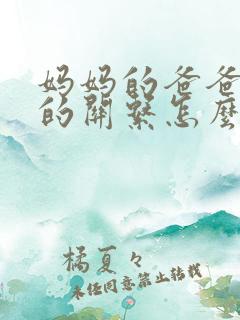 妈妈的爸爸
的關繫怎麼
橘夏々
未经同意禁止转载